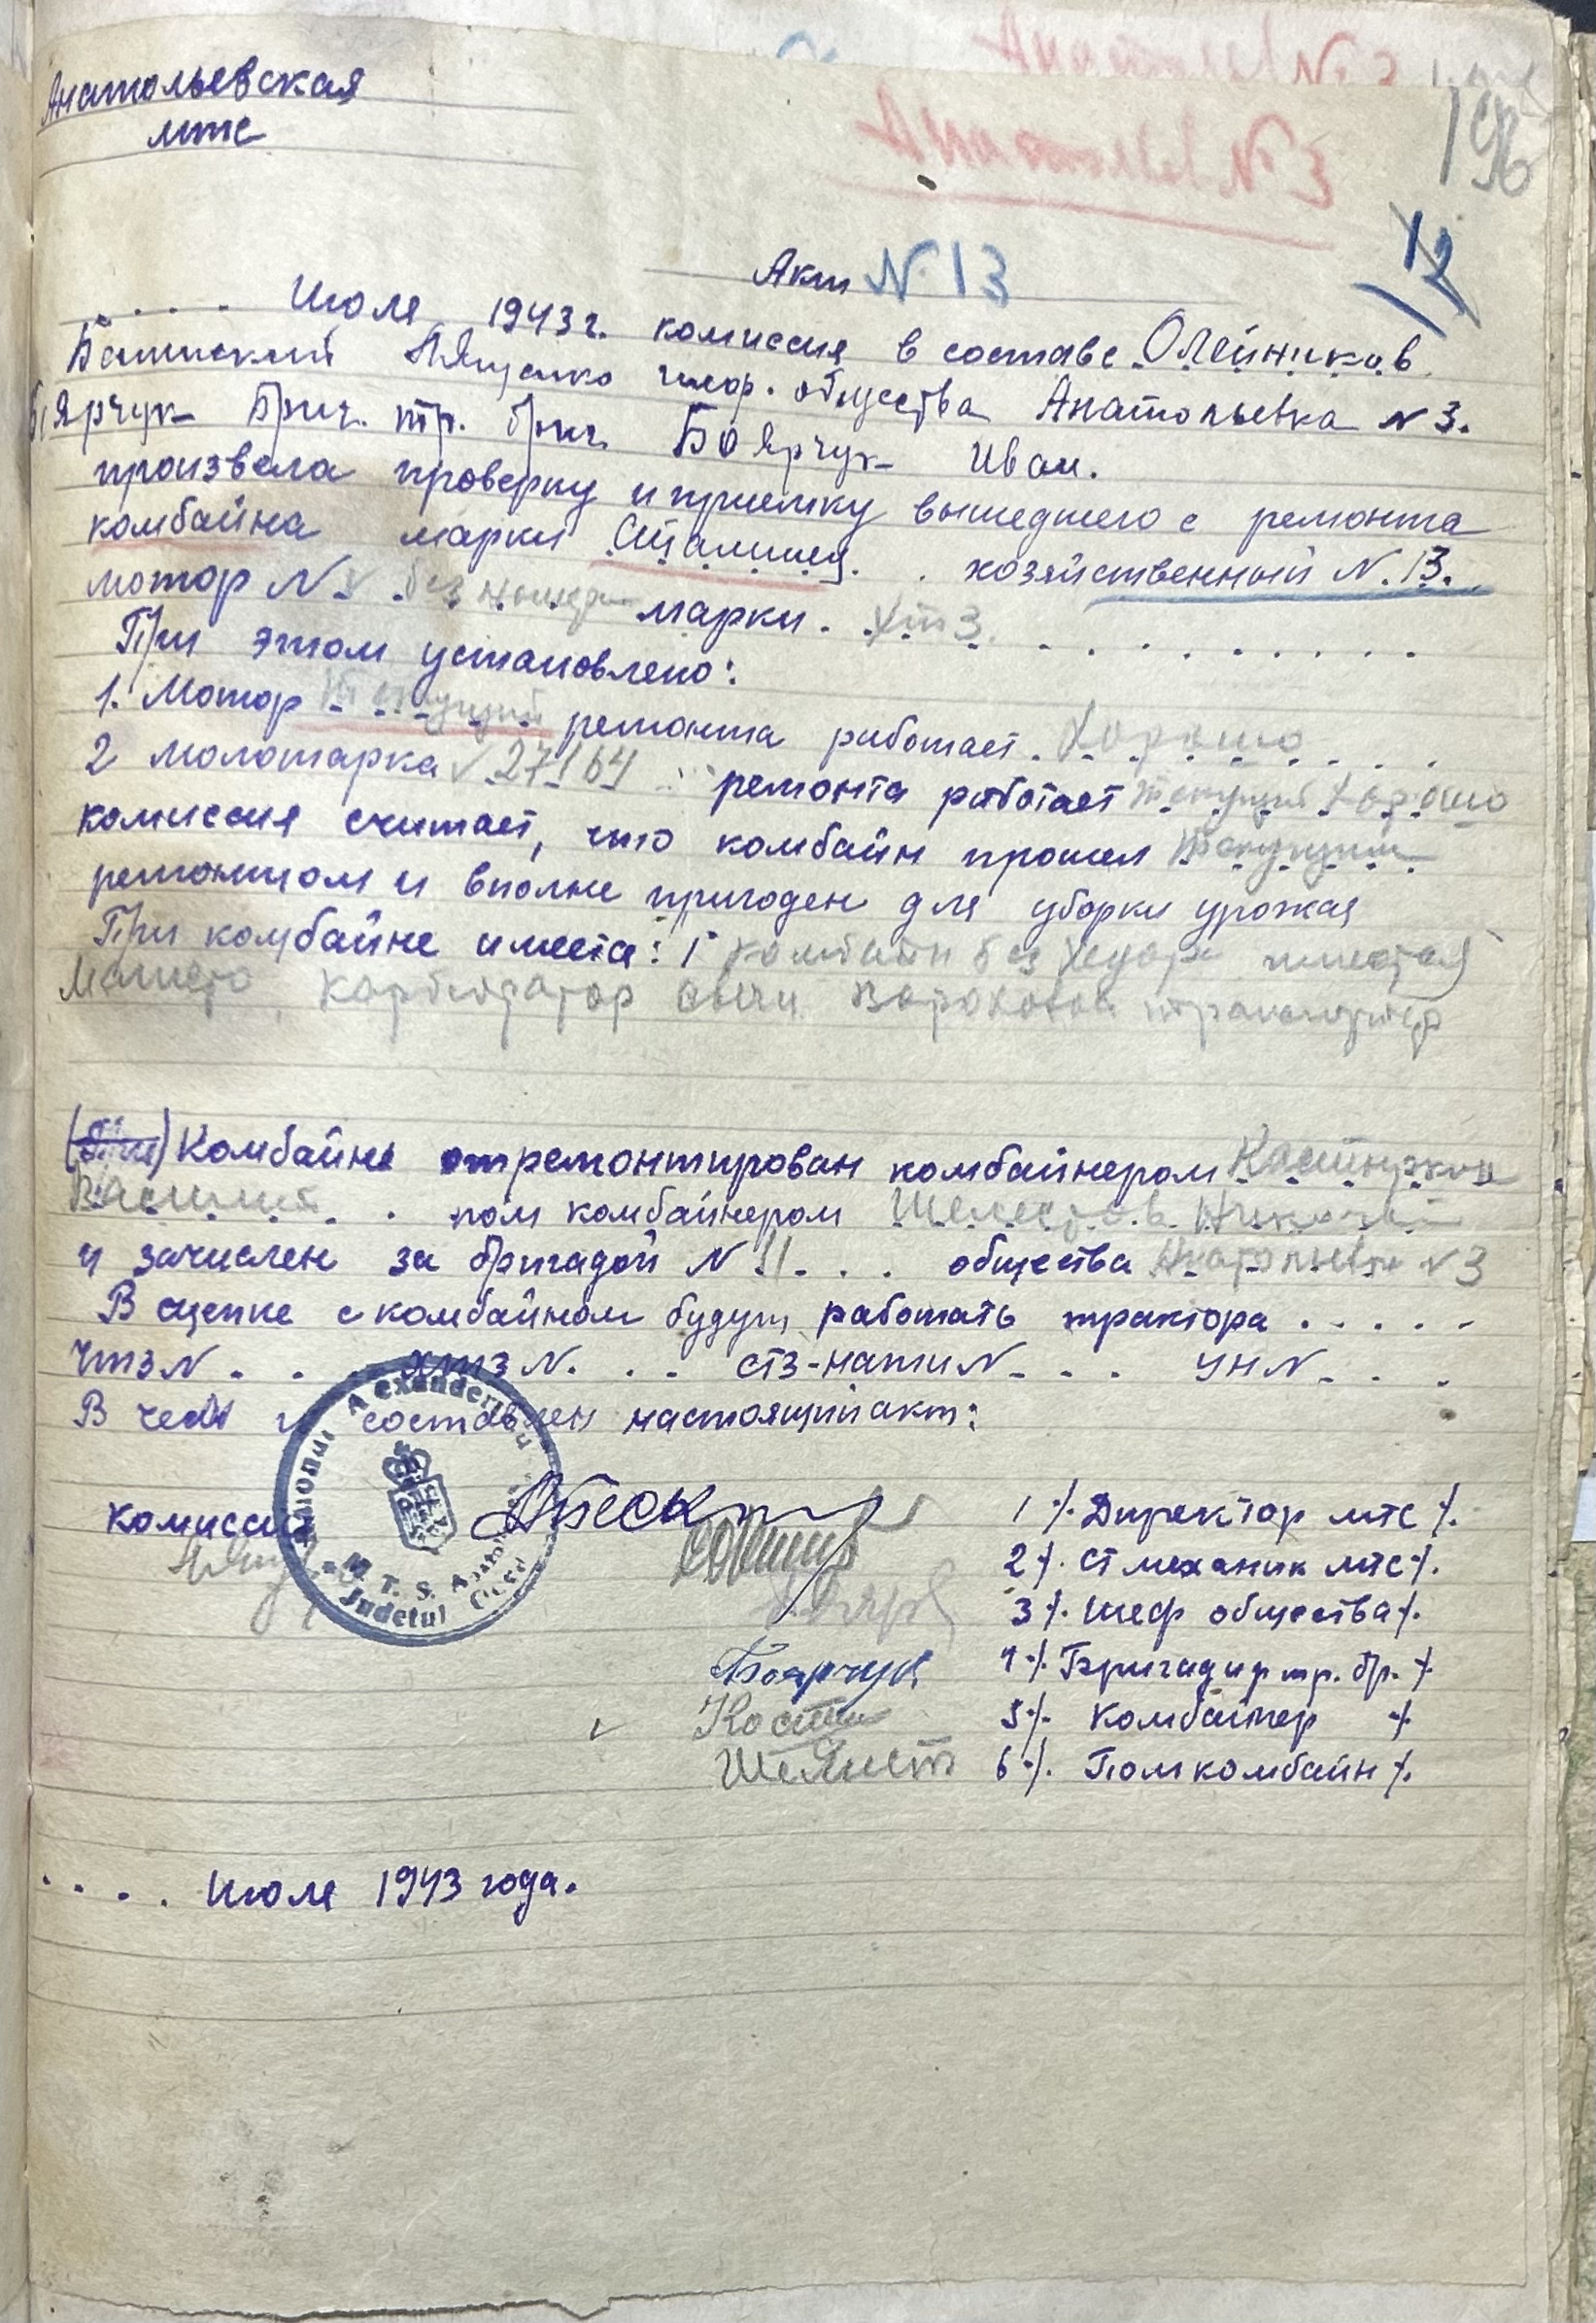 Анатольевская
мтс
196
12
Акт N 13
. . . . Июля 1943 г. комиссия в составе Олейников
шеф. общества Анатольевка N 3.
Боярчук Бриг. тр. бриг. Боярчук Иван.
произвела проверку и приемку вышедшего с ремонта
комбайна марки Сталинец . . хозяйственный N. 13.
мотор N без номера марки . ХТЗ. . . . . . . . .
При этом установлено:
1. Мотор текущий ремонта работает . хорошо . . .
2 молотарка 27164 ремонта работает текущий хорошо
комиссия считает, что комбайн прошел текущим
ремонтом и вполне пригоден для уборки урожая
При комбайне имеется: 1 комбайн без имеется
Магнето карбюратор свечи транспортер
Комбайне отремонтирован комбайнером
Василий . . пом комбайнером Николай
и зачислен за бригадой N 11 . . . общества Анатольевка N 3
В сцепке с комбайном будут работать трактора . . . . .
ЧТЗ N . . . ХТЗ N. . . СТЗ-нати N . . . УН N . . .
В чем и составлен настоящий акт:
M. T. S.
Judetul
комиссия
1 /. Директор мтс /.
2 /. Ст механик мтс /.
3 /. шеф общества /.
Боярчук 4 /. Бригадир тр. бр. /.
5 /. Комбайнер /.
6 /. Помкомбайн /.
. . . . Июля 1943 года.